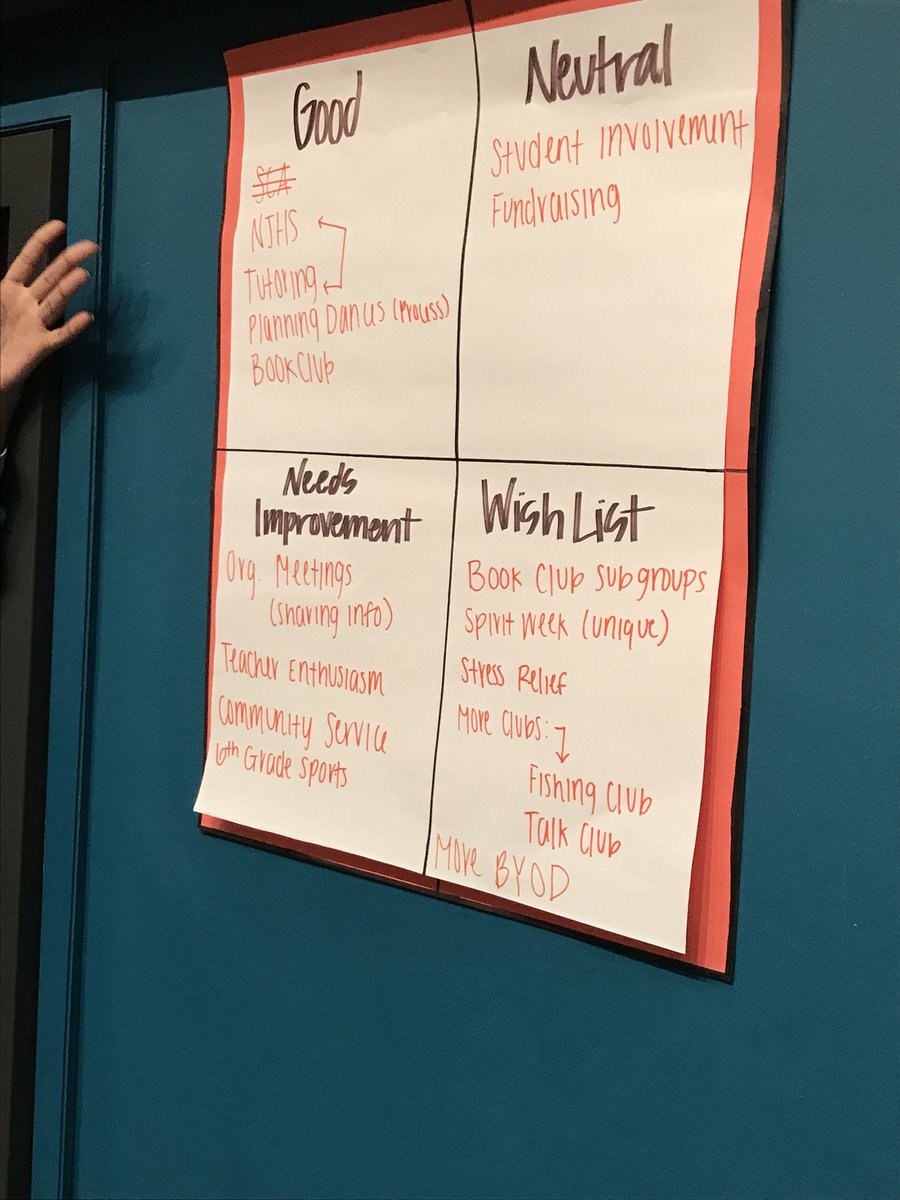 Good
SCA
NJHS
Tutoring
Planning Dances (Process)
Book Club
Neutral
Student Involvement
Fundraising
Needs
Improvement
Org. Meetings
(sharing info)
Teacher Enthusiasm
Community Service
6th Grade Sports
Wish List
Book Club Subgroups
Spirit Week (unique)
Stress Relief
More Clubs:
Fishing Club
Talk Club
More BYOD